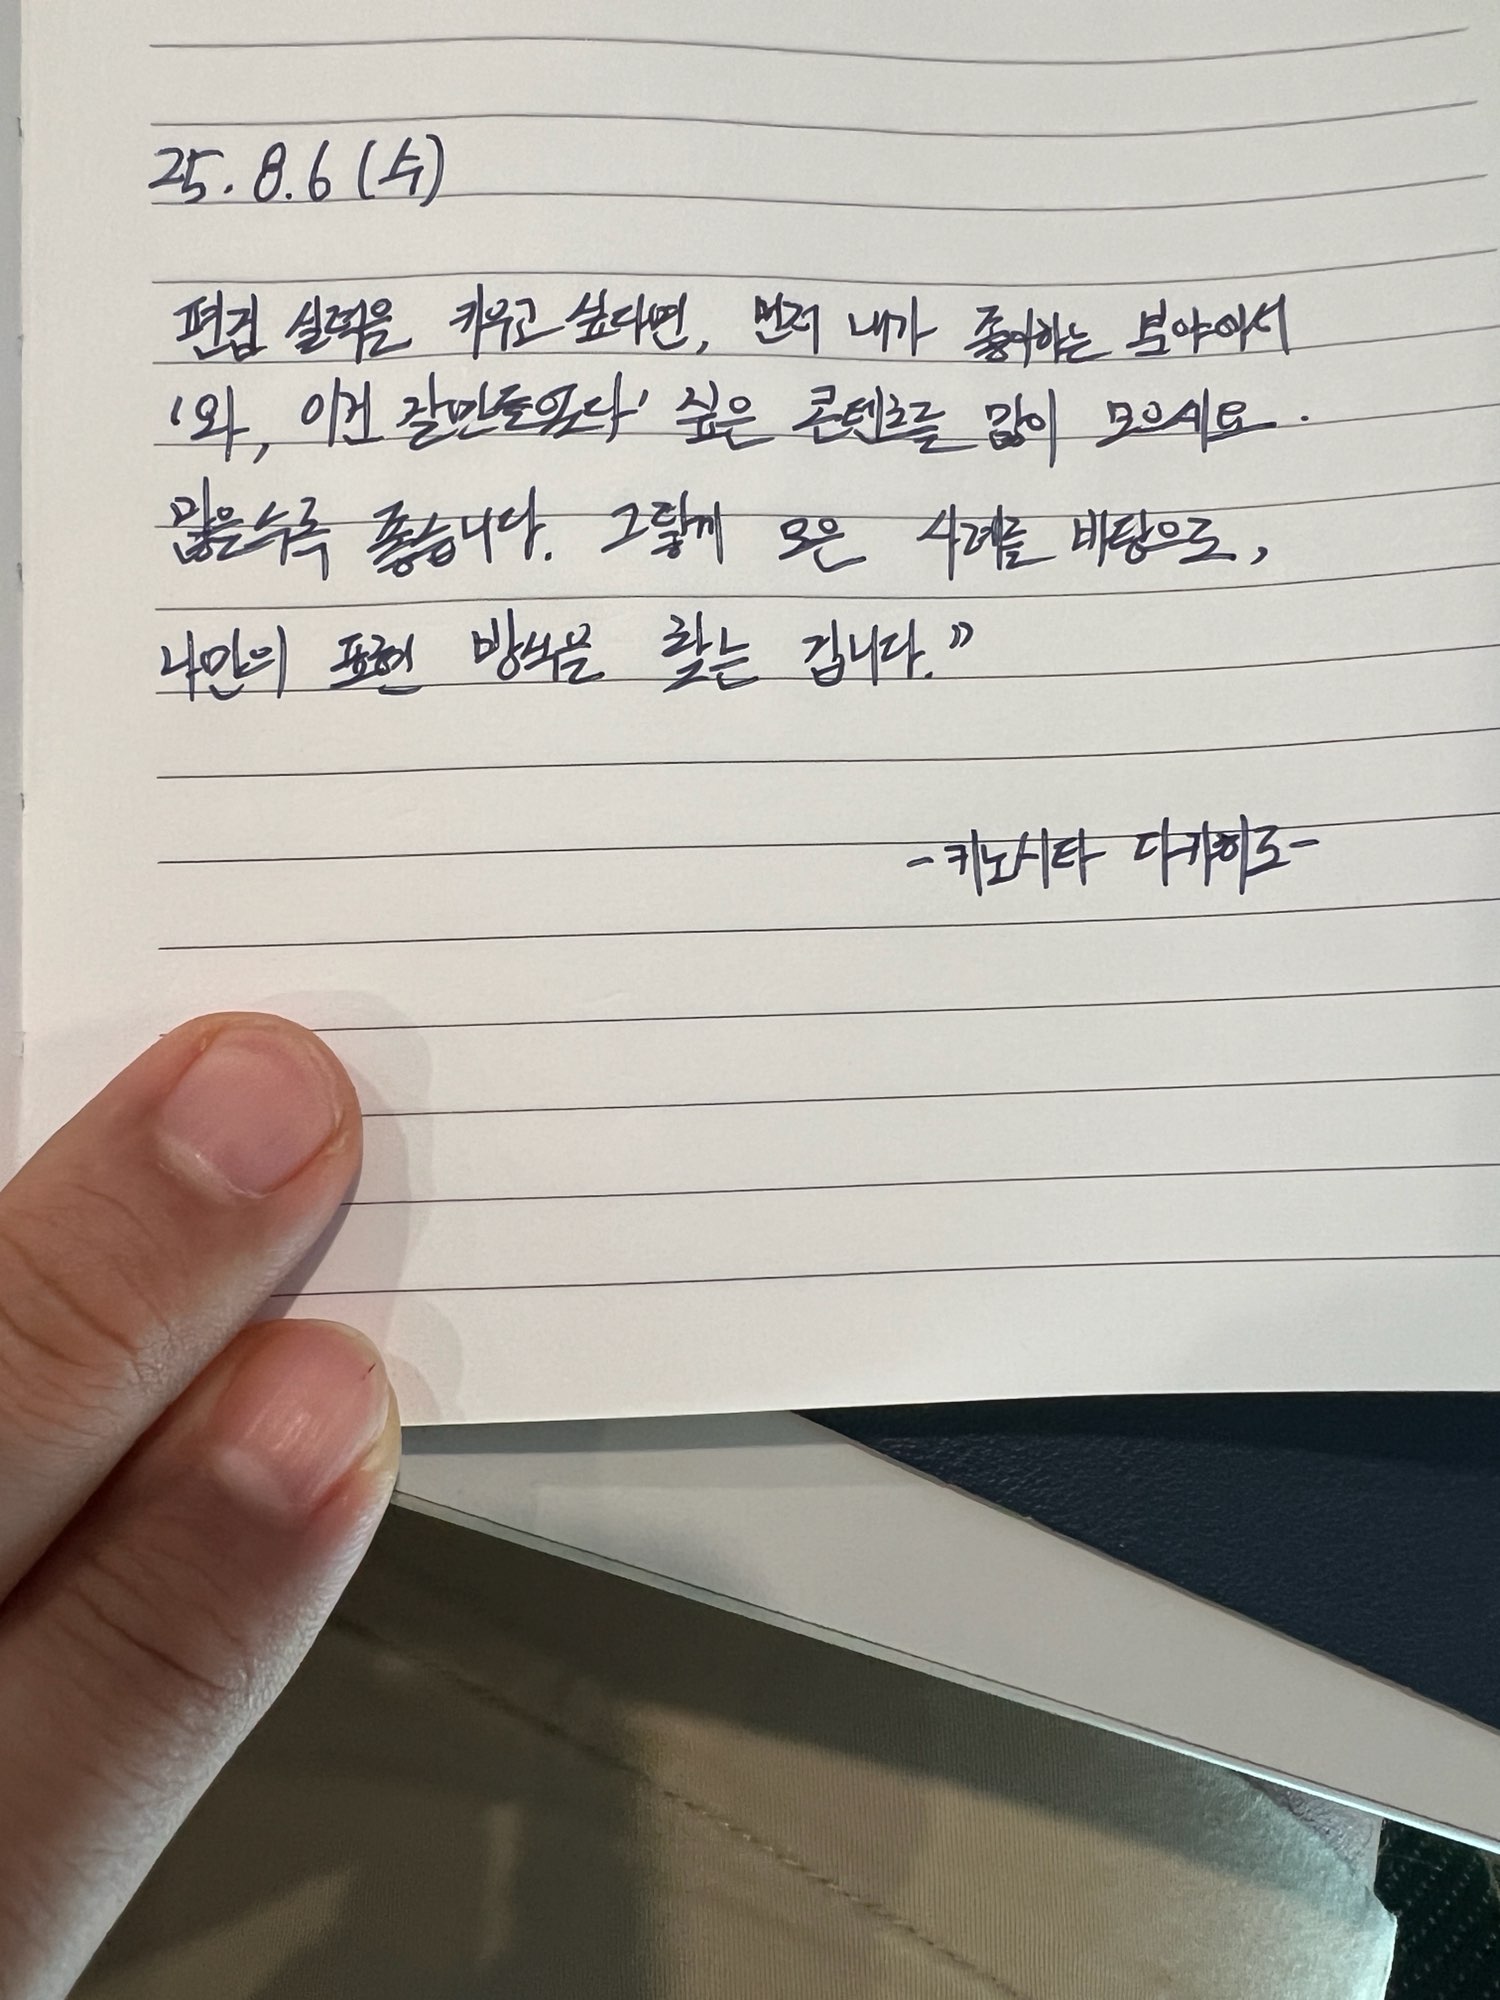 25. 8. 6 (수)
편집 실력을 키우고 싶다면, 먼저 내가 좋아하는 분야에서
'와, 이건 잘만들었다' 싶은 콘텐츠를 많이 모으세요.
많을수록 좋습니다. 그렇게 모은 사례를 바탕으로,
나만의 표현 방식을 찾는 겁니다."
-키노시타 다카히로-